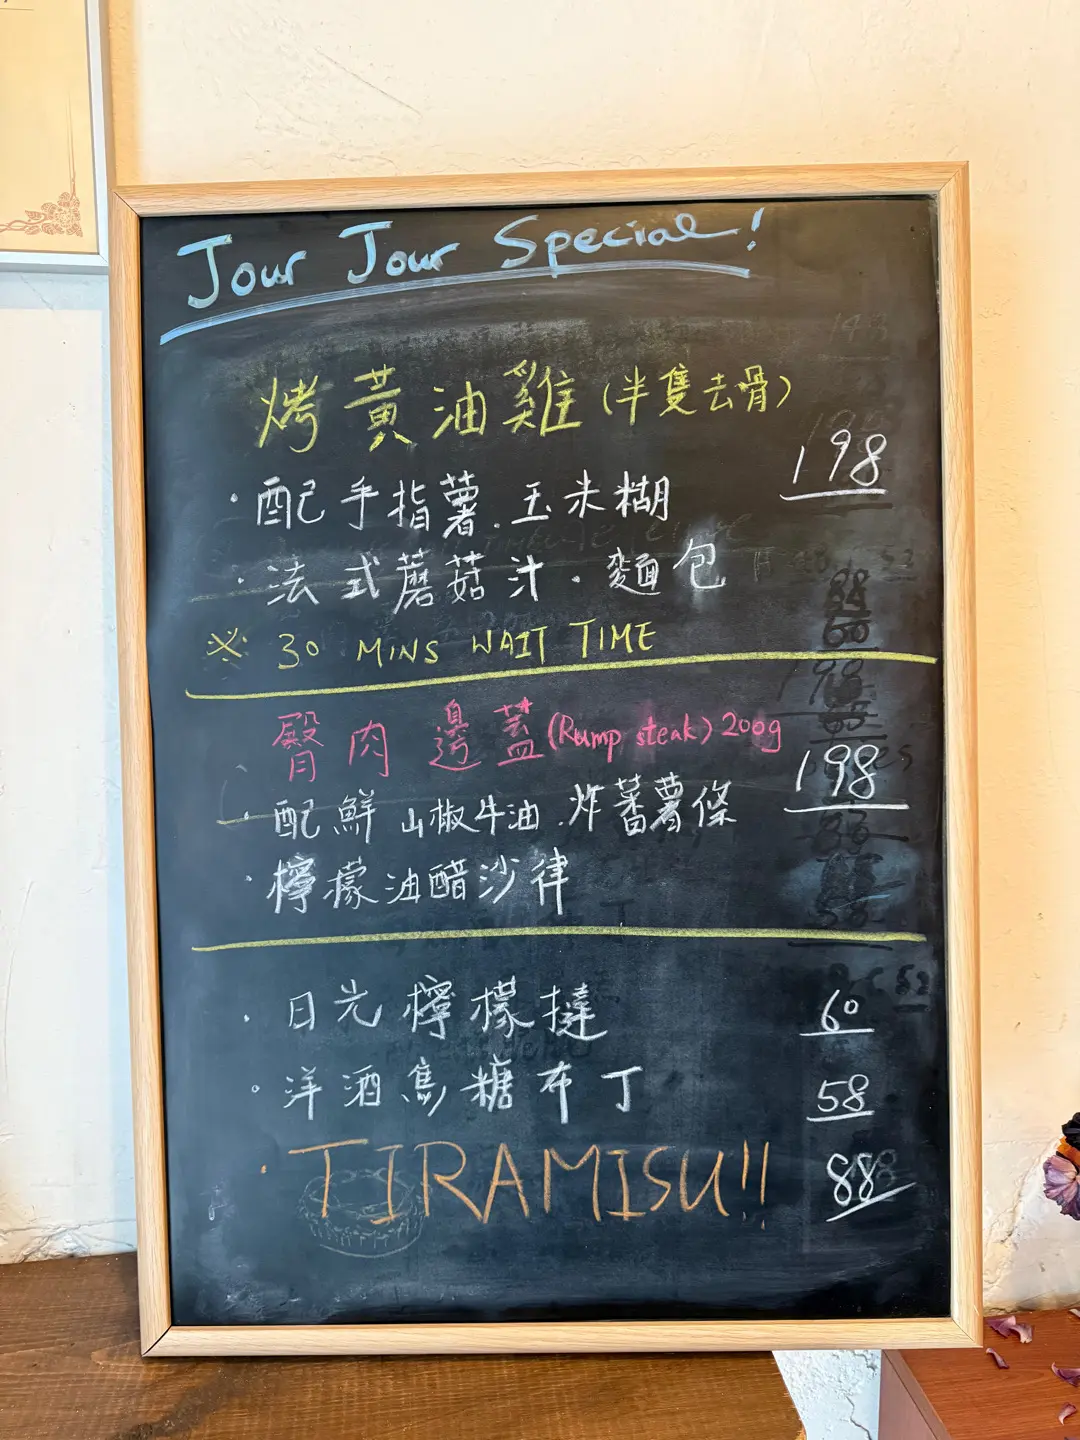 Jour Jour Special!
烤黃油雞(半隻去骨)
198
・配手指薯.玉米糊
・法式蘑菇汁.麵包
※ 30 MINS WAIT TIME
臀肉邊蓋(Rump steak) 200g
198
・配鮮山椒牛油.炸蕃薯條
・檸檬油醋沙律
・日光檸檬撻 60
・洋酒焦糖布丁 58
・TIRAMISU!! 88